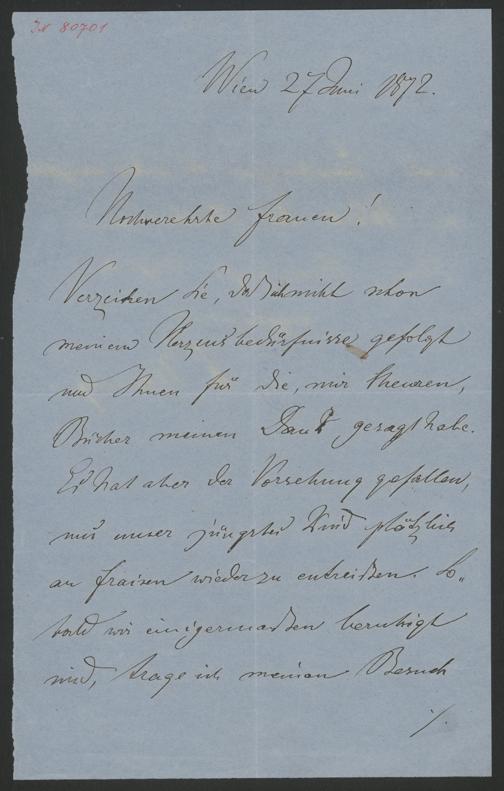 IN 80701
Wien 27 Juni 1872.
Hochverehrte Frauen!
Verzeihen Sie, daß ich nicht schon
meinem Herzensbedürfnisse gefolgt
und Ihnen für die, mir theuren,
Bücher meinen Dank gesagt habe.
Es hat aber der Vorsehung gefallen,
uns unser jüngstes Kind plötzlich
an Fraisen wieder zu entreißen. So-
bald wir einigermaßen beruhigt
sind, trage ich meinen Besuch
./.